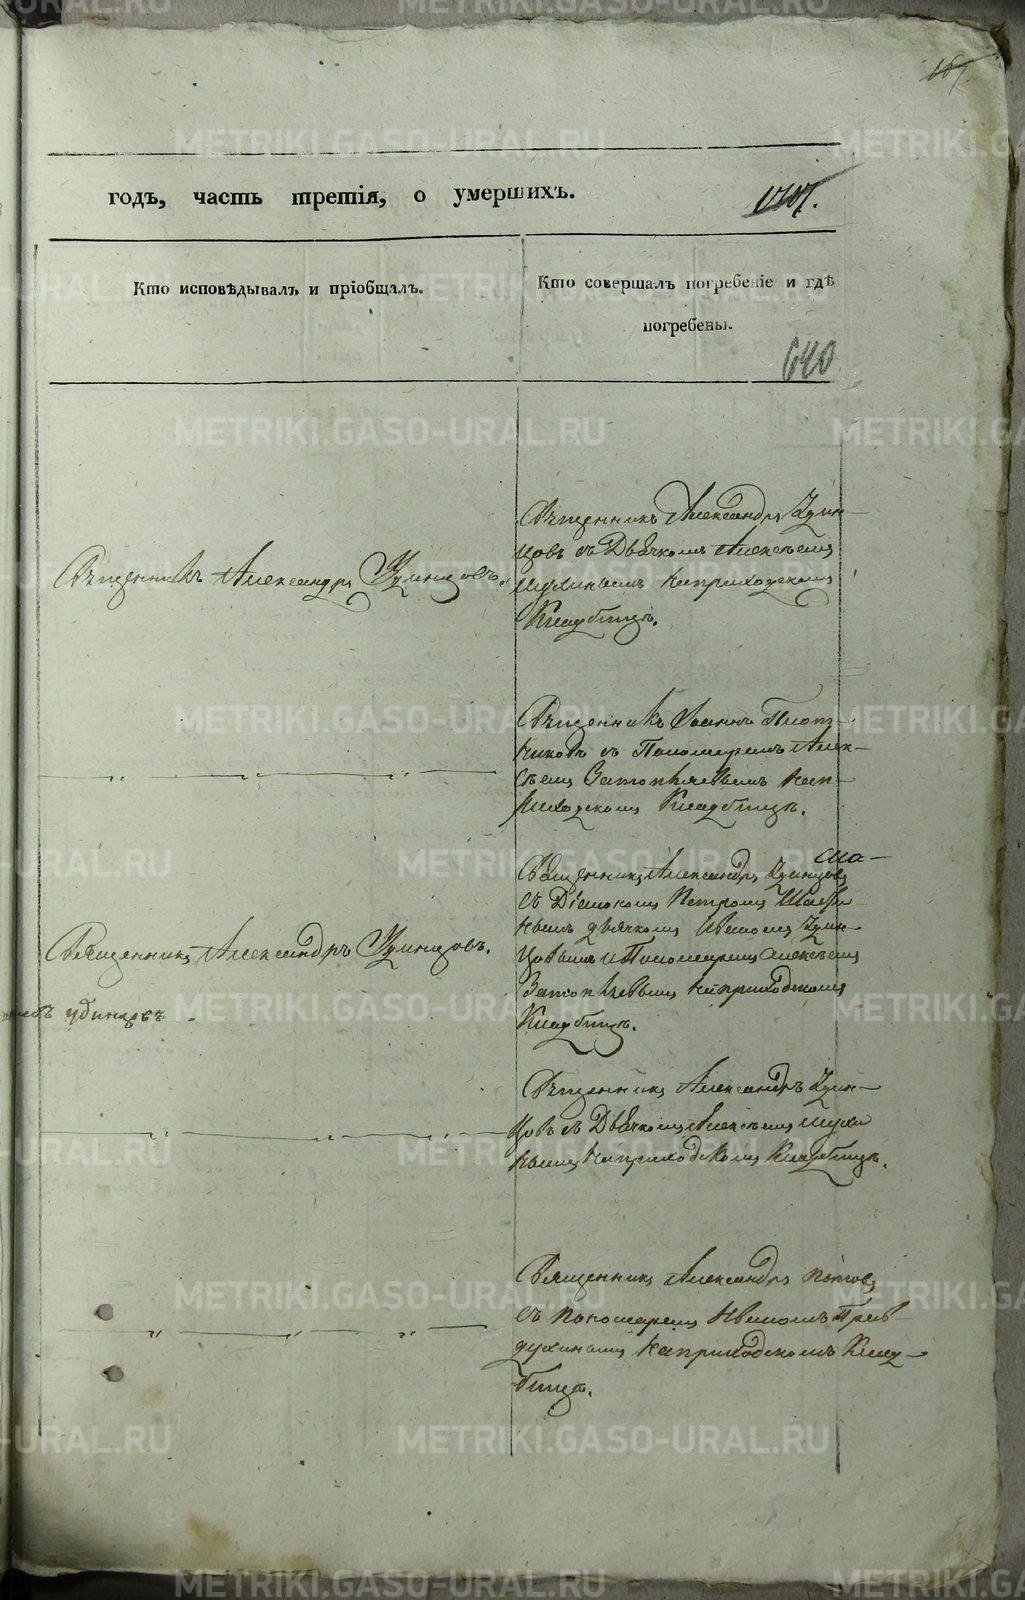 годъ, часть третія, о умершихъ.
Кто исповѣдывалъ и пріобщалъ.
Кто совершалъ погребеніе и гдѣ
погребены.
640
Священникъ Александръ Удинцовъ.
Священникъ Александръ Удин-
цовъ съ Дьячкомъ Алексѣемъ
Шухинымъ на приходскомъ
Кладбищѣ.
Священникъ Іоаннъ Плот-
никовъ съ Пономаремъ Алек-
сѣемъ Затопляевымъ на п-
риходскомъ Кладбищѣ.
Священникъ Александръ Удинцовъ.
Священникъ Александръ Удинцовъ
съ Діакономъ Петромъ
нымъ дьячкомъ Иваномъ Удин-
цовымъ и Пономаремъ Алексѣемъ
на приходскомъ
Кладбищѣ.
Священникъ Александръ Удин-
цовъ съ Дьячкомъ Алексѣемъ Шухи
нымъ на приходскомъ Кладбищѣ.
Священникъ Александръ Поповъ
съ пономаремъ Иваномъ
на приходскомъ Клад-
бищѣ.
METRIKI.GASO-URAL.RU